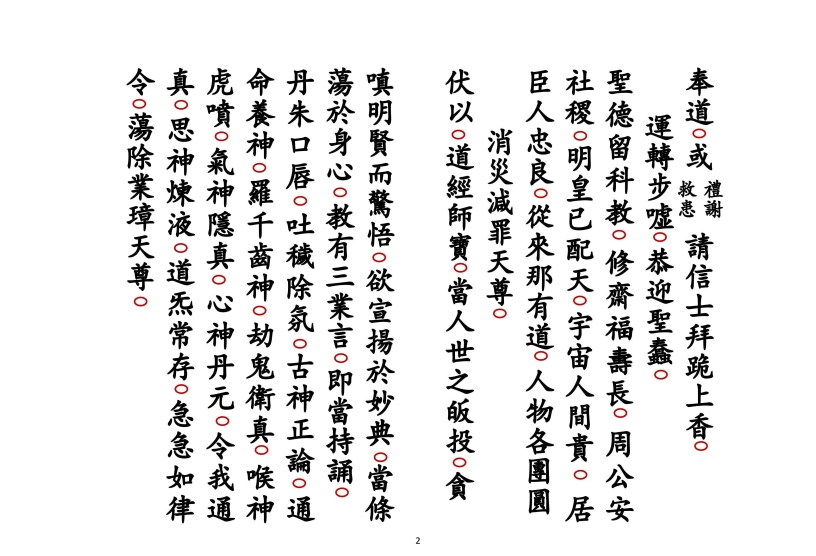 奉道○或禮謝救患請信士拜跪上香○
運轉步噓○恭迎聖蠡○
聖德留科教○修齋福壽長○周公安
社稷○明皇已配天○宇宙人間貴○居
臣人忠良○從來那有道○人物各團圓
消災減罪天尊○
伏以○道經師寶○當人世之皈投○貪
嗔明賢而驚悟○欲宣揚於妙典○當條
蕩於身心○教有三業言○即當持誦○
丹朱口唇○吐穢除氛○古神正論○通
命養神○羅千齒神○劫鬼衛真○喉神
虎噴○氣神隱真○心神丹元○令我通
真○思神煉液○道炁常存○急急如律
令○蕩除業璋天尊○
2